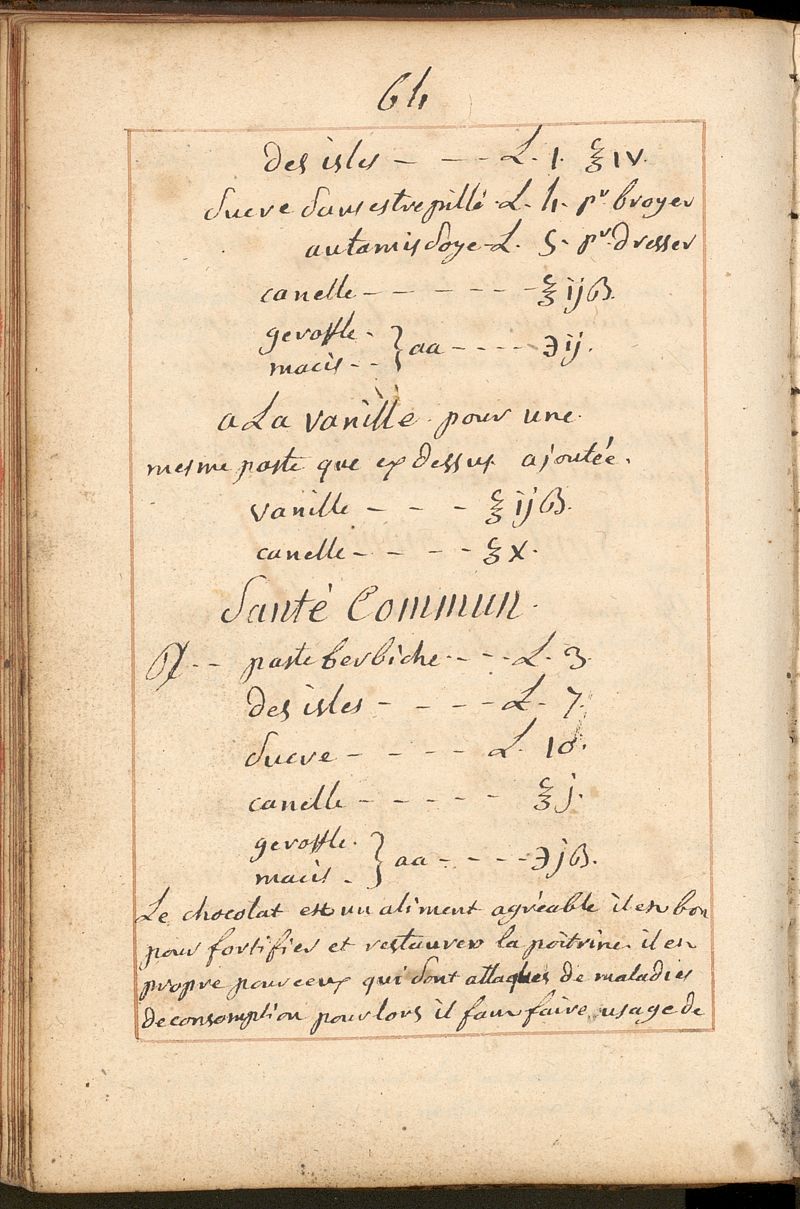 64
des isles - - - L. 1. ℥ IV.
sucre dans estrepillé - L. 4. pr broyer
autamis soye - L. 5. pr dresser
canelle - - - - - - ℥ ijß.
geroffle -
macis - - } aa - - - - ℈ ij.
a La vanille. pour une
mesme paste que cy dessus ajoutée.
vanille - - - ℥ ijß.
canelle - - - - ℥ x.
Santé Commun.
℞ - - paste berbiche - - - L. 3.
des isles - - - - L. 7.
sucre - - - - L. 10.
canelle - - - - - ℥ j.
geroffle.
macis - } aa - - - - ℈ jß.
Le chocolat est un aliment agréable il est bon
pour fortifier et restaurer la poitrine. il est
propre pour ceux qui sont attaqués de maladies
de consomption pour lors il faut faire usage de